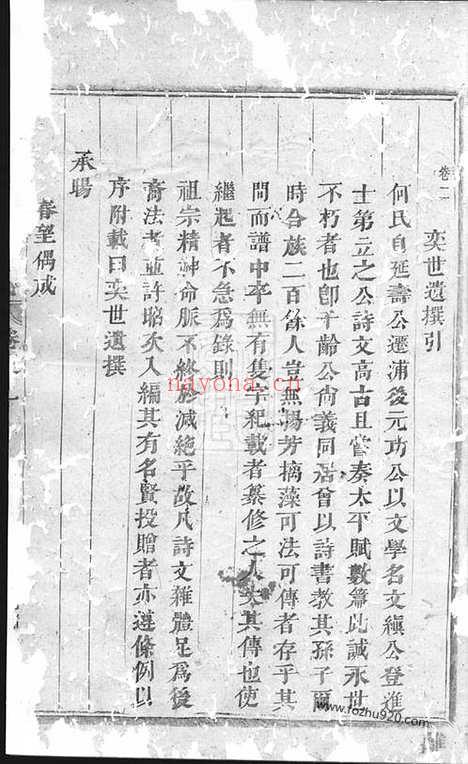 卷二
奕世遺撰引
何氏自延壽公遷浦後元功公以文學名文縝公登進
士第立之公詩文高古且嘗奏太平賦數篇此誠永世
不朽者也卽千齡公尚義同居曾以詩書教其孫子爾
時合族二百餘人豈無揚芳摛藻可法可傳者存乎其
間而譜中卒無有隻字紀載者纂修之人失其傳也使
繼起者不急爲錄則
祖宗精神命脈不終於滅絕乎故凡詩文雜體足爲後
裔法者並許昭次入編其有名賢投贈者亦遵條例以
序附載曰奕世遺撰
承暘
春望偶成
nayona.cn
www.fozhu920.com